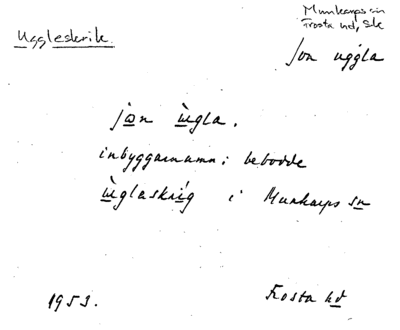 Munkarps sn
Frosta hd, Sk
Uggleskrik.
Jon uggla
jon ùgla.
inbyggarnamn; bebodde
ùglaskrig i Munkarps sn
1953.
Frosta hd